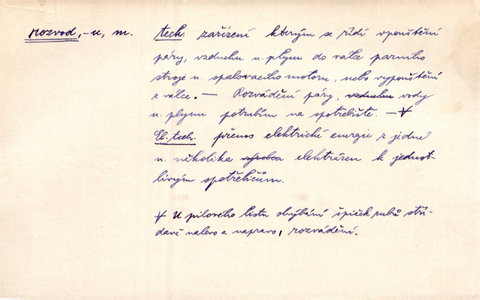 rozvod, -u, m. tech. zařízení kterým se řídí vpouštění
páry, vzduchu n. plynu do válce parního
stroje n. spalovacího motoru, nebo vypouštění
z válce. — Rozvádění páry, vzduchu vody
n. plynu potrubím na spotřebiště. — V
El. tech. přenos elektrické energie z jedné
n. několika elektráren k jednot-
livým spotřebičům.
V U pilového listu ohýbání špiček zubů stří-
davě nalevo a napravo, rozvádění.